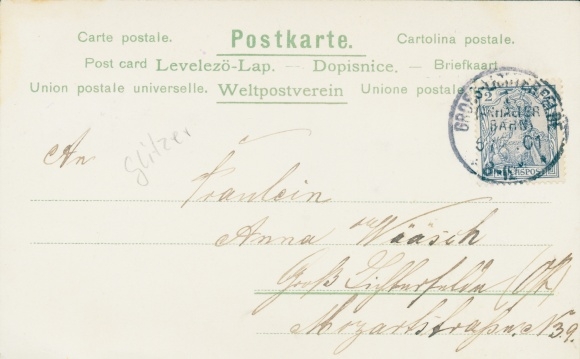 Carte postale. Postkarte. Cartolina postale.
Post card Levelezö-Lap. — Dopisnice. — Briefkaart
Union postale universelle. Weltpostverein Unione postale
GROSS-LICHTERFELDE
ANHALTER
BAHN
01
REICHSPOST
Glitzer
An
Fräulein
Anna Wääsch
Groß Lichterfelde
Mozartstraße N 39.